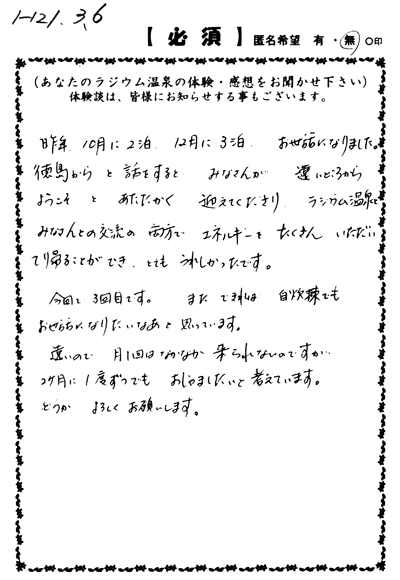 H21.3.6
【必須】 匿名希望 有・無 ○印
(あなたのラジウム温泉の体験・感想をお聞かせ下さい)
体験談は、皆様にお知らせする事もございます。
昨年、10月に2泊、12月に3泊、お世話になりました。
徳島から と 話をすると みなさんが 遠いところから
ようこそ と あたたかく 迎えてくださり ラジウム温泉と
みなさんとの交流の両方で エネルギーを たくさん いただい
て帰ることができ、とても うれしかったです。
今回で 3回目です。 また できれば 自炊棟でも
お世話になりたいなあと 思っています。
遠いので 月1回はなかなか 来られないのですが
2ヶ月に1度ずつでも おじゃましたいと考えています。
どうか よろしくお願いします。